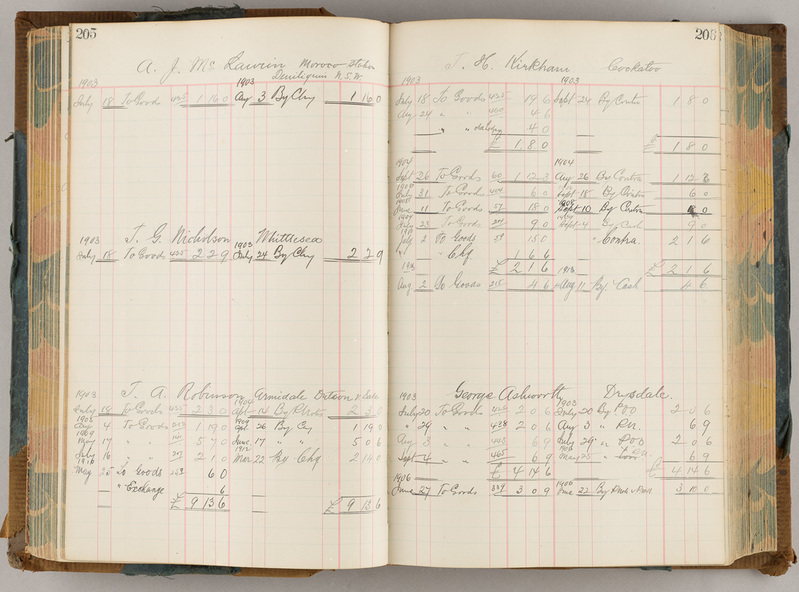 205
A. J. Mc Lawrin Moroco Station
Deniliquin N.S.W.
1903 1903
July 18 To Goods 425 1 16 0 Aug 3 By Chq 1 16 0
1903 T. G. Nicholson 1903 Whittlesea
July 18 To Goods 425 2 2 9 July 24 By Chq 2 2 9
1903 T. A. Robinson Armidale
July 18 To Goods 2 3 0
Aug 4 To Goods 1 19 0 26 By Chq 1 19 0
May 17 " " 5 7 0 June 17 " " 5 0 6
July 16 " " 2 1 0 Mar 22 By Chq 2 14 0
May 25 To Goods 6 0
" Exchange 6
£ 9 13 6 £ 9 13 6
206
T. H. Kirkham Cockatoo
1903 1903
July 18 To Goods 425 19 6 Sept 24 By Contra 1 8 0
Aug 24 " " 460 4 6
" " 4 0
£ 1 8 0 £ 1 8 0
1904 1904
Sept 26 To Goods 60 1 12 3 Aug 26 By Contra 1 12 3
July 31 To Goods 6 0 Sept 18 By Contra 6 0
June 11 To Goods 57 18 0 Sept 10 By Contra 8 0
23 To Goods 9 0 Sept 4 By Cash 9 0
July 2 To Goods 59 15 0 " Contra 2 1 6
" " Chq 1 6 6
£ 2 1 6 £ 2 1 6
Aug 2 To Goods 215 4 6 Aug 11 By Cash 4 6
1903 George Ashworth Drysdale.
1903
July 20 To Goods 2 0 6 July 20 By POO 2 0 6
" 29 " " 438 2 0 6 Aug 3 " P.N. 6 9
Aug 3 " " 6 9 July 29 " POO 2 0 6
Sept 4 " " 465 6 9 May 25 6 9
£ 4 14 6 £ 4 14 6
1906 1906
June 27 To Goods 339 3 0 9 June 22 By 3 10 0